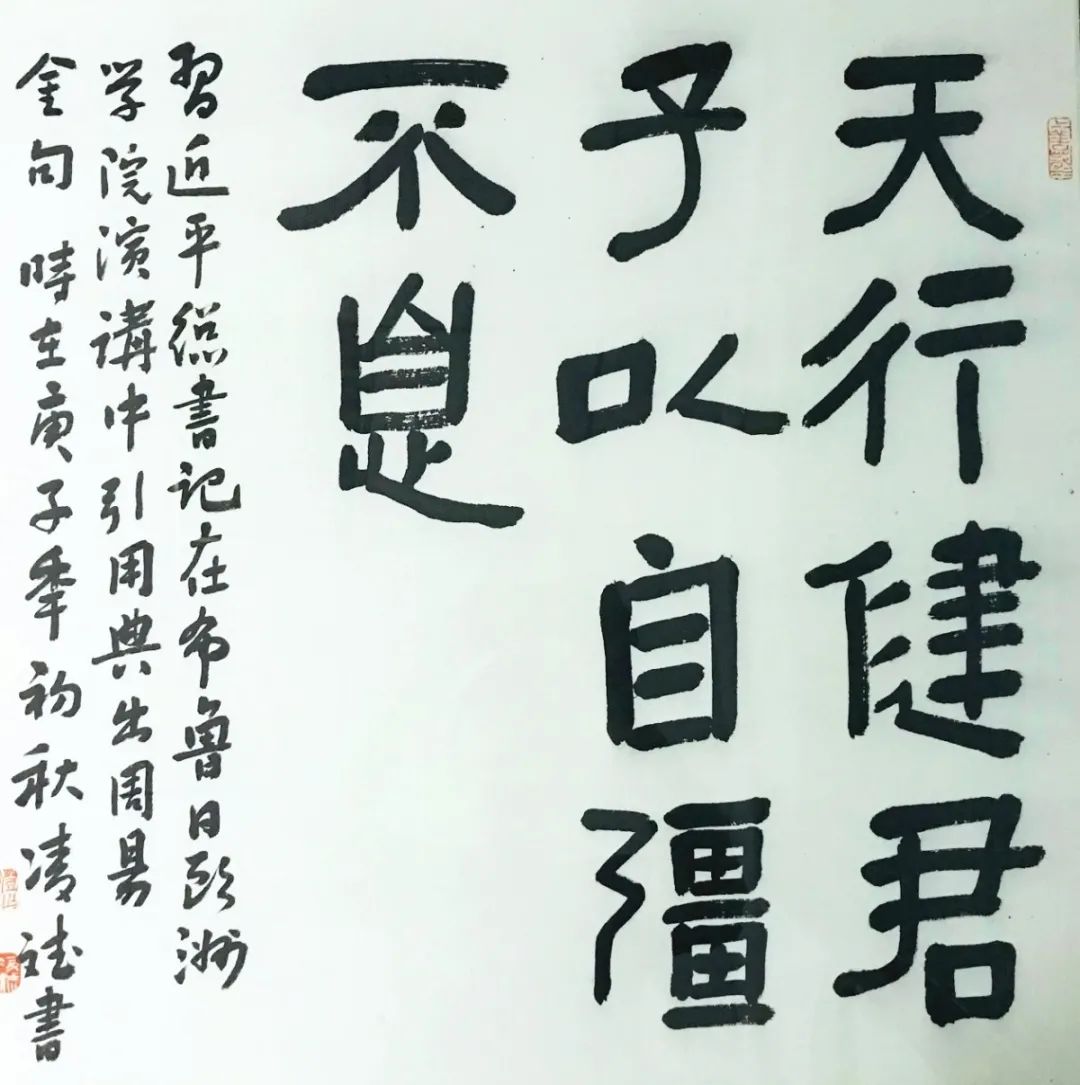 天行健君
子以自彊
不息
習近平総書记在布魯日欧洲
学院演講中引用典出周易
金句 時在庚子年初秋凌斌書